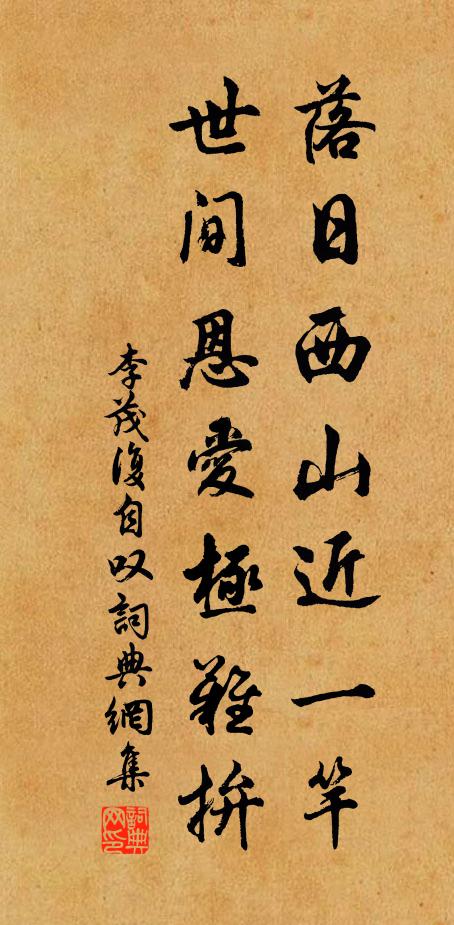 落日西山近一竿
世间恩愛極難拚
李茂復自叹詞典網集
詞典网印